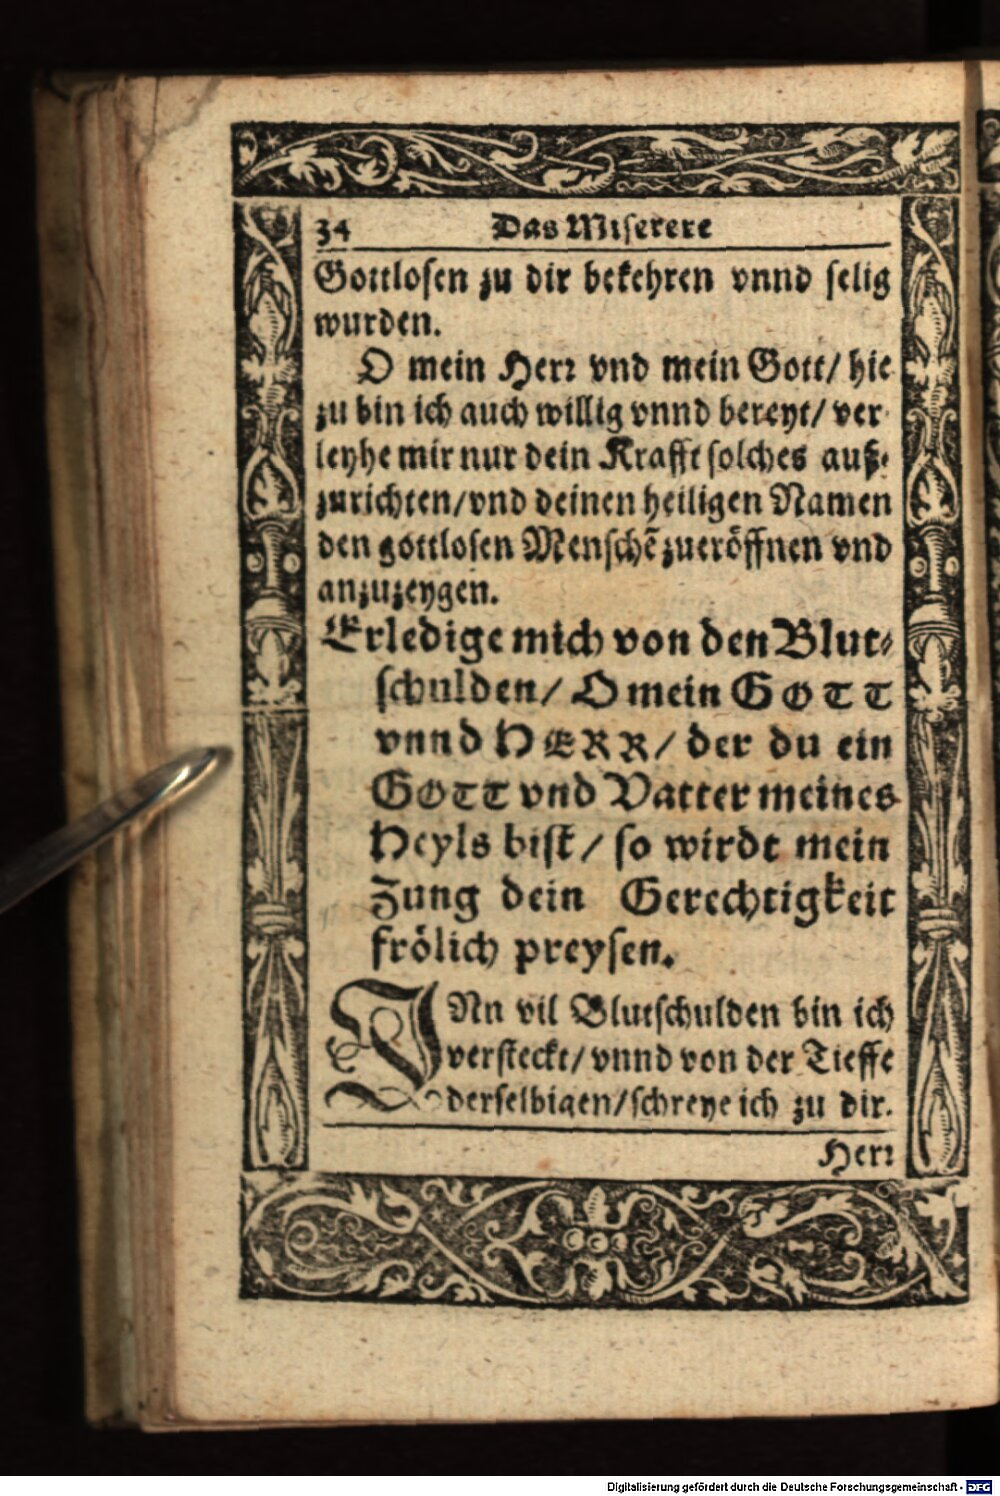 34 Das Miserere
Gottlosen zu dir bekehren vnnd selig
wurden.
O mein Herr vnd mein Gott/ hie
zu bin ich auch willig vnnd bereyt/ ver
leyhe mir nur dein Krafft solches auß-
zurichten/vnd deinen heiligen Namen
den gottlosen Menschē zueröffnen vnd
anzuzeygen.
Erledige mich von den Blut-
schulden/ O mein GOTT
vnnd HERR/ der du ein
GOTT vnd Vatter meines
Heyls bist/ so wirdt mein
Zung dein Gerechtigkeit
frölich preysen.
INn vil Blutschulden bin ich
versteckt/ vnnd von der Tieffe
derselbigen/schreye ich zu dir.
Herr
Digitalisierung gefördert durch die Deutsche Forschungsgemeinschaft - DFG